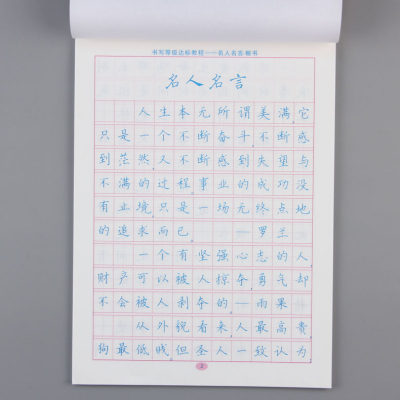 书写等级达标教程——名人名言·楷书
名人名言
人生本无所谓美满,它
只是一个不断奋斗,不断感
到茫然,又不断感到失望与
不满的过程,事业的成功没
有止境,只是一场无终点地
的追求而已。 —罗兰
一个有坚强心志的人,
财产可以被人掠夺,勇气却
不会被人剥夺的。—雨果
从外貌看来,人最高贵,
狗最低贱,但圣人一致认为
2